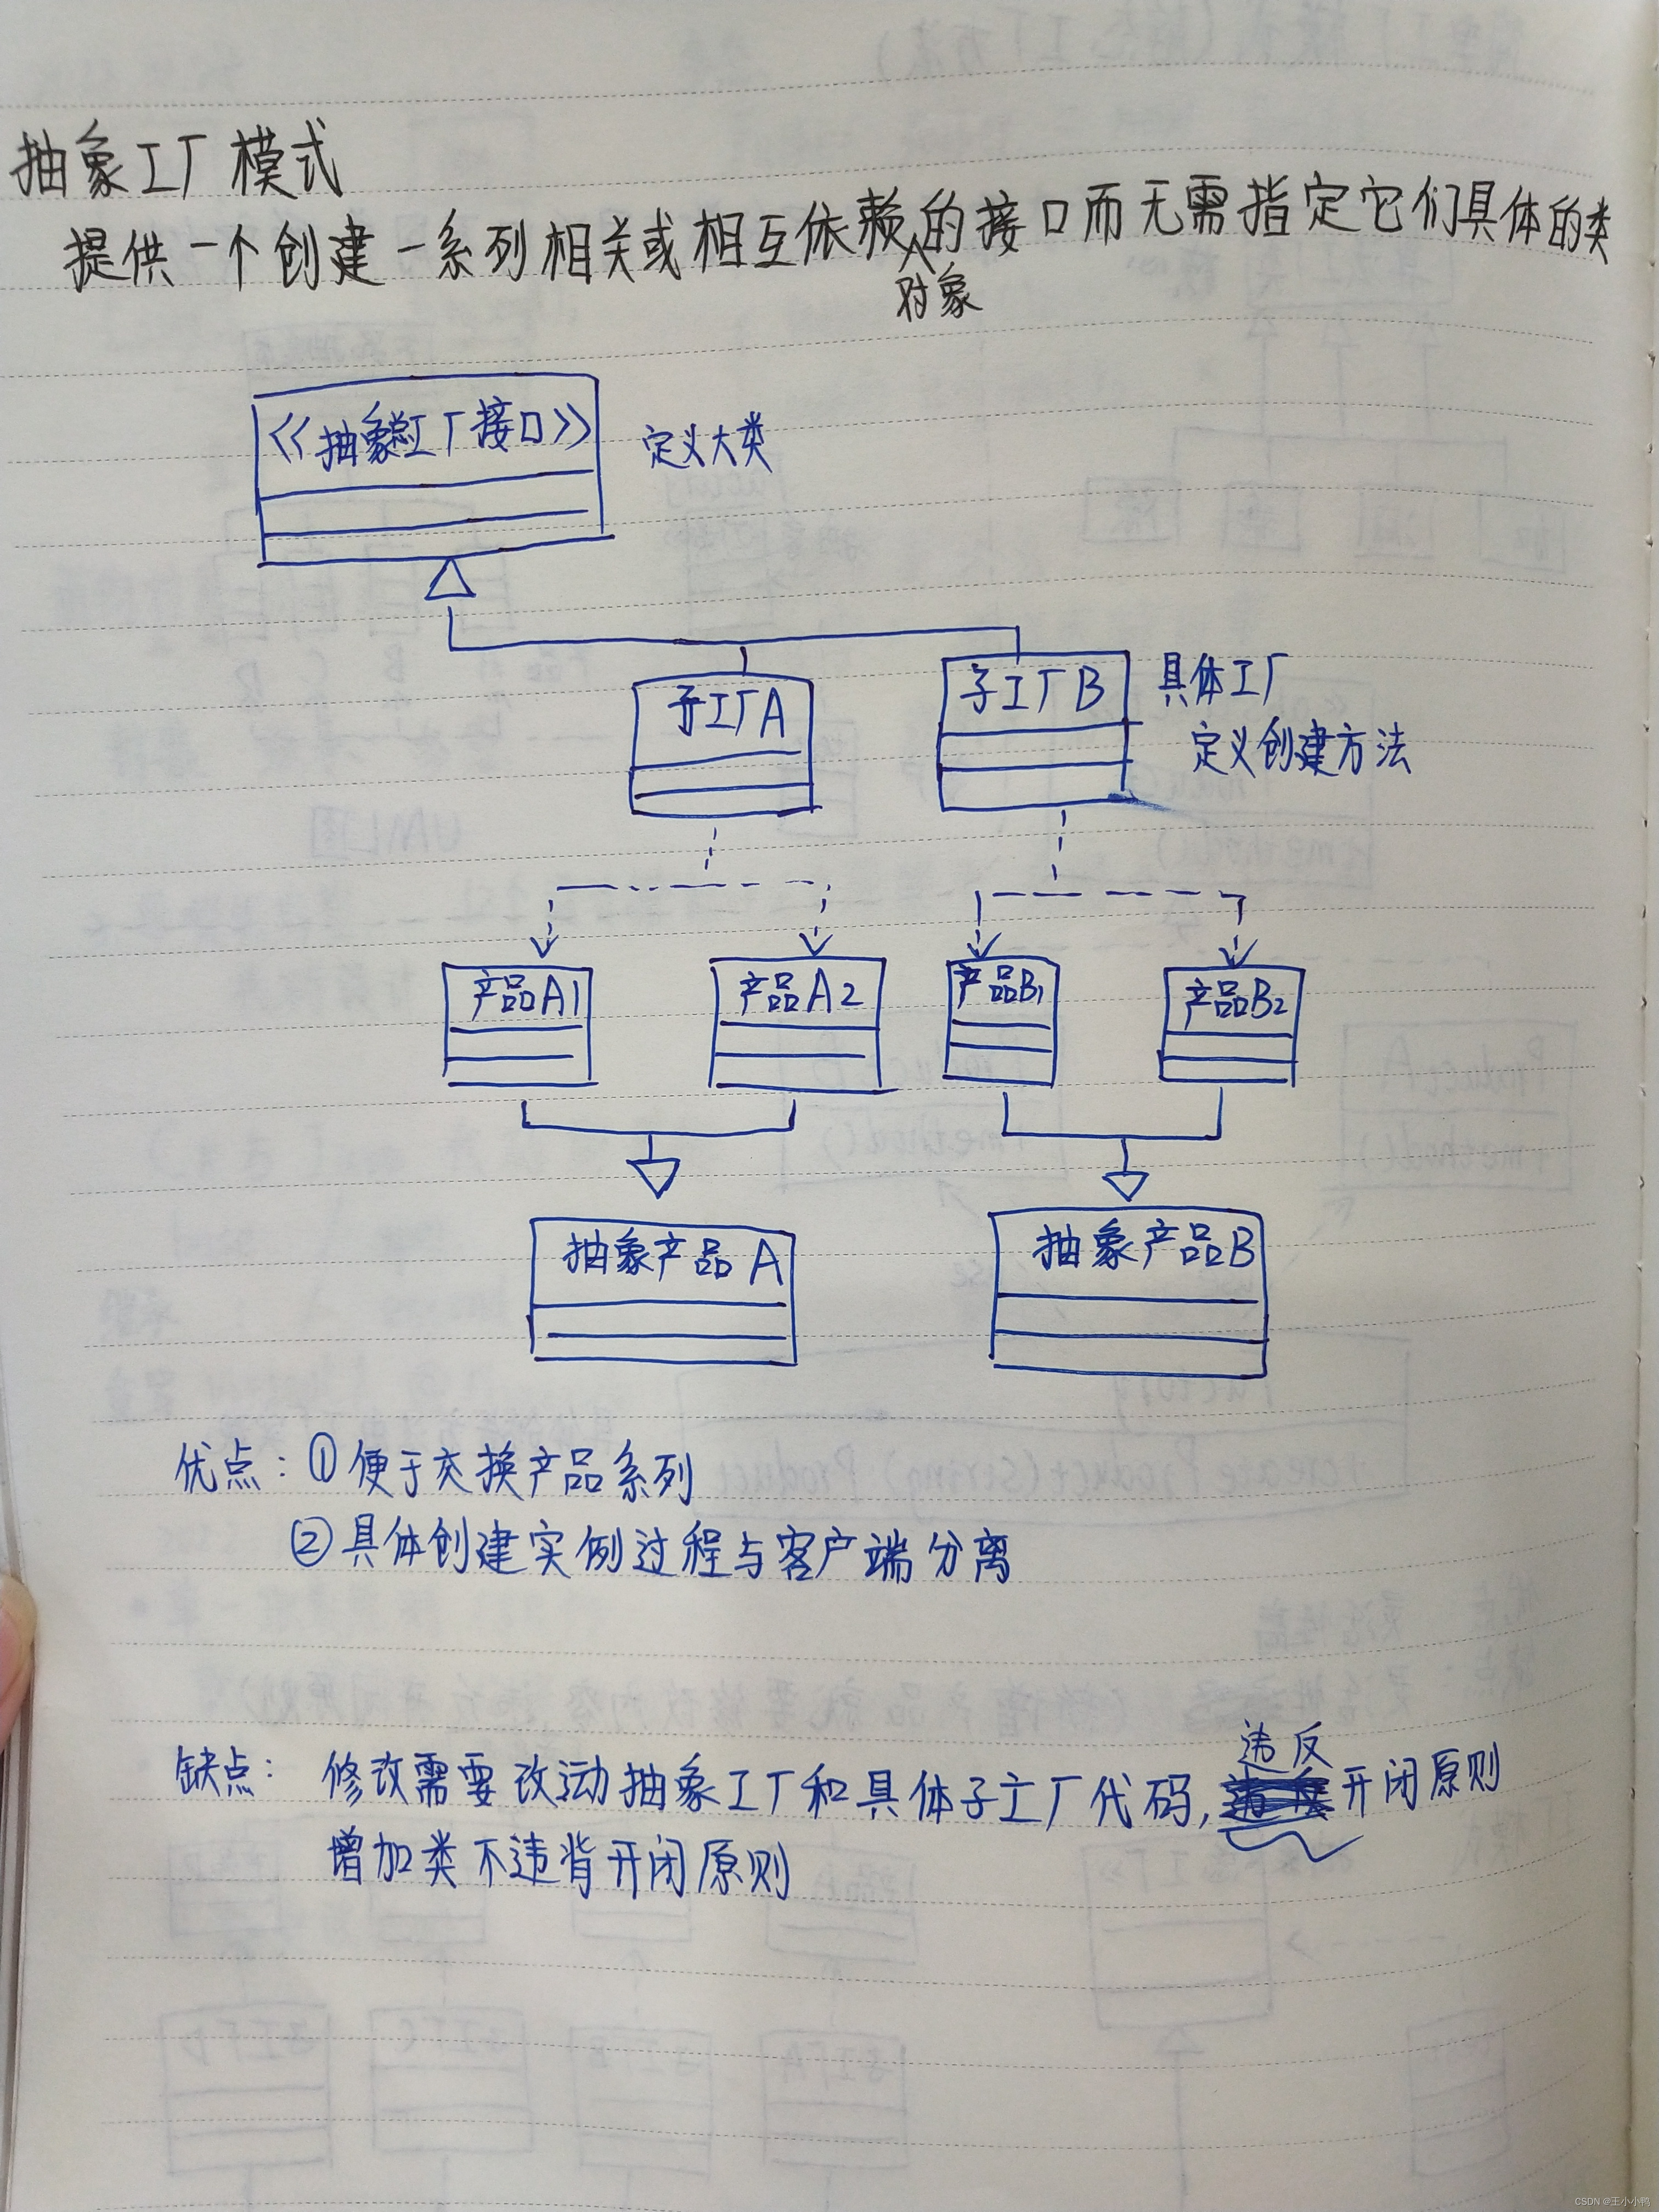 抽象工厂模式
提供一个创建一系列相关或相互依赖对象的接口而无需指定它们具体的类
<<抽象工厂接口>>
定义大类
子工厂A
子工厂B
具体工厂
定义创建方法
产品A1
产品A2
产品B1
产品B2
抽象产品A
抽象产品B
优点：①便于交换产品系列
②具体创建实例过程与客户端分离
缺点：修改需要改动抽象工厂和具体子工厂代码,违反开闭原则
增加类不违背开闭原则
CSDN @王小小鸭